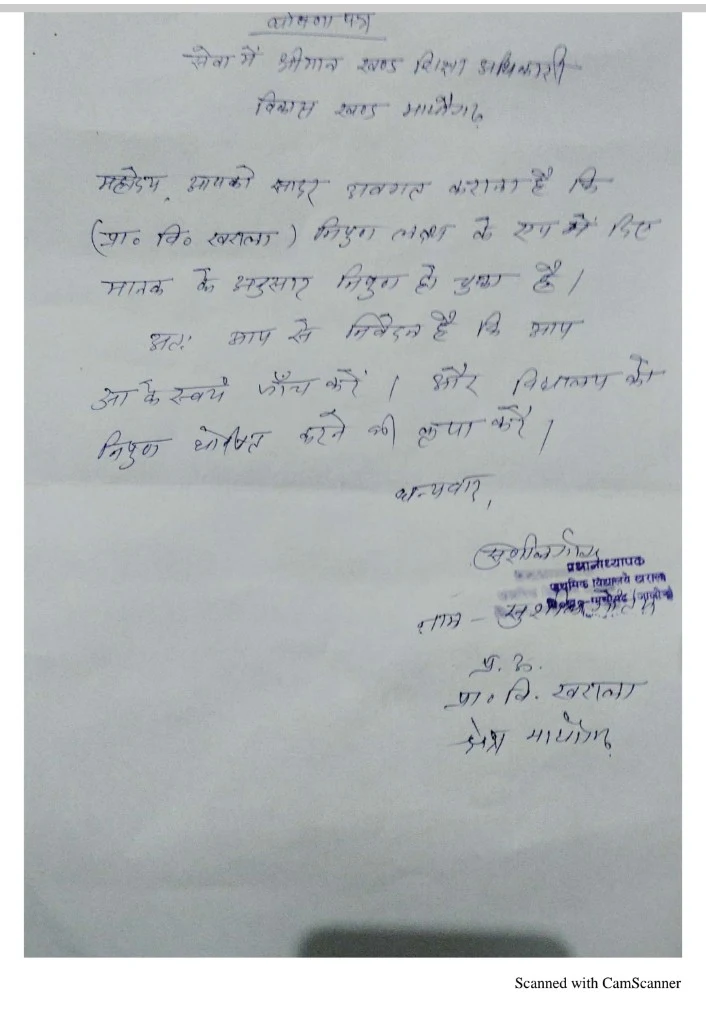 घोषणा पत्र
सेवा में श्रीमान खण्ड शिक्षा अधिकारी
विकास खण्ड माधौगढ़
महोदय, आपको सादर अवगत कराना है कि
(प्रा० वि० खराला) निपुण लक्ष्य के रूप में दिए
मानक के अनुसार निपुण हो चुका है।
अतः आप से निवेदन है कि आप
आके स्वयं जाँच करें। और विद्यालय को
निपुण घोषित करने की कृपा करें।
धन्यवाद,
प्रधानाध्यापक
प्राथमिक विद्यालय खराला
नाम - सुशील
प्र. अ.
प्रा० वि. खराला
क्षेत्र माधौगढ़
Scanned with CamScanner